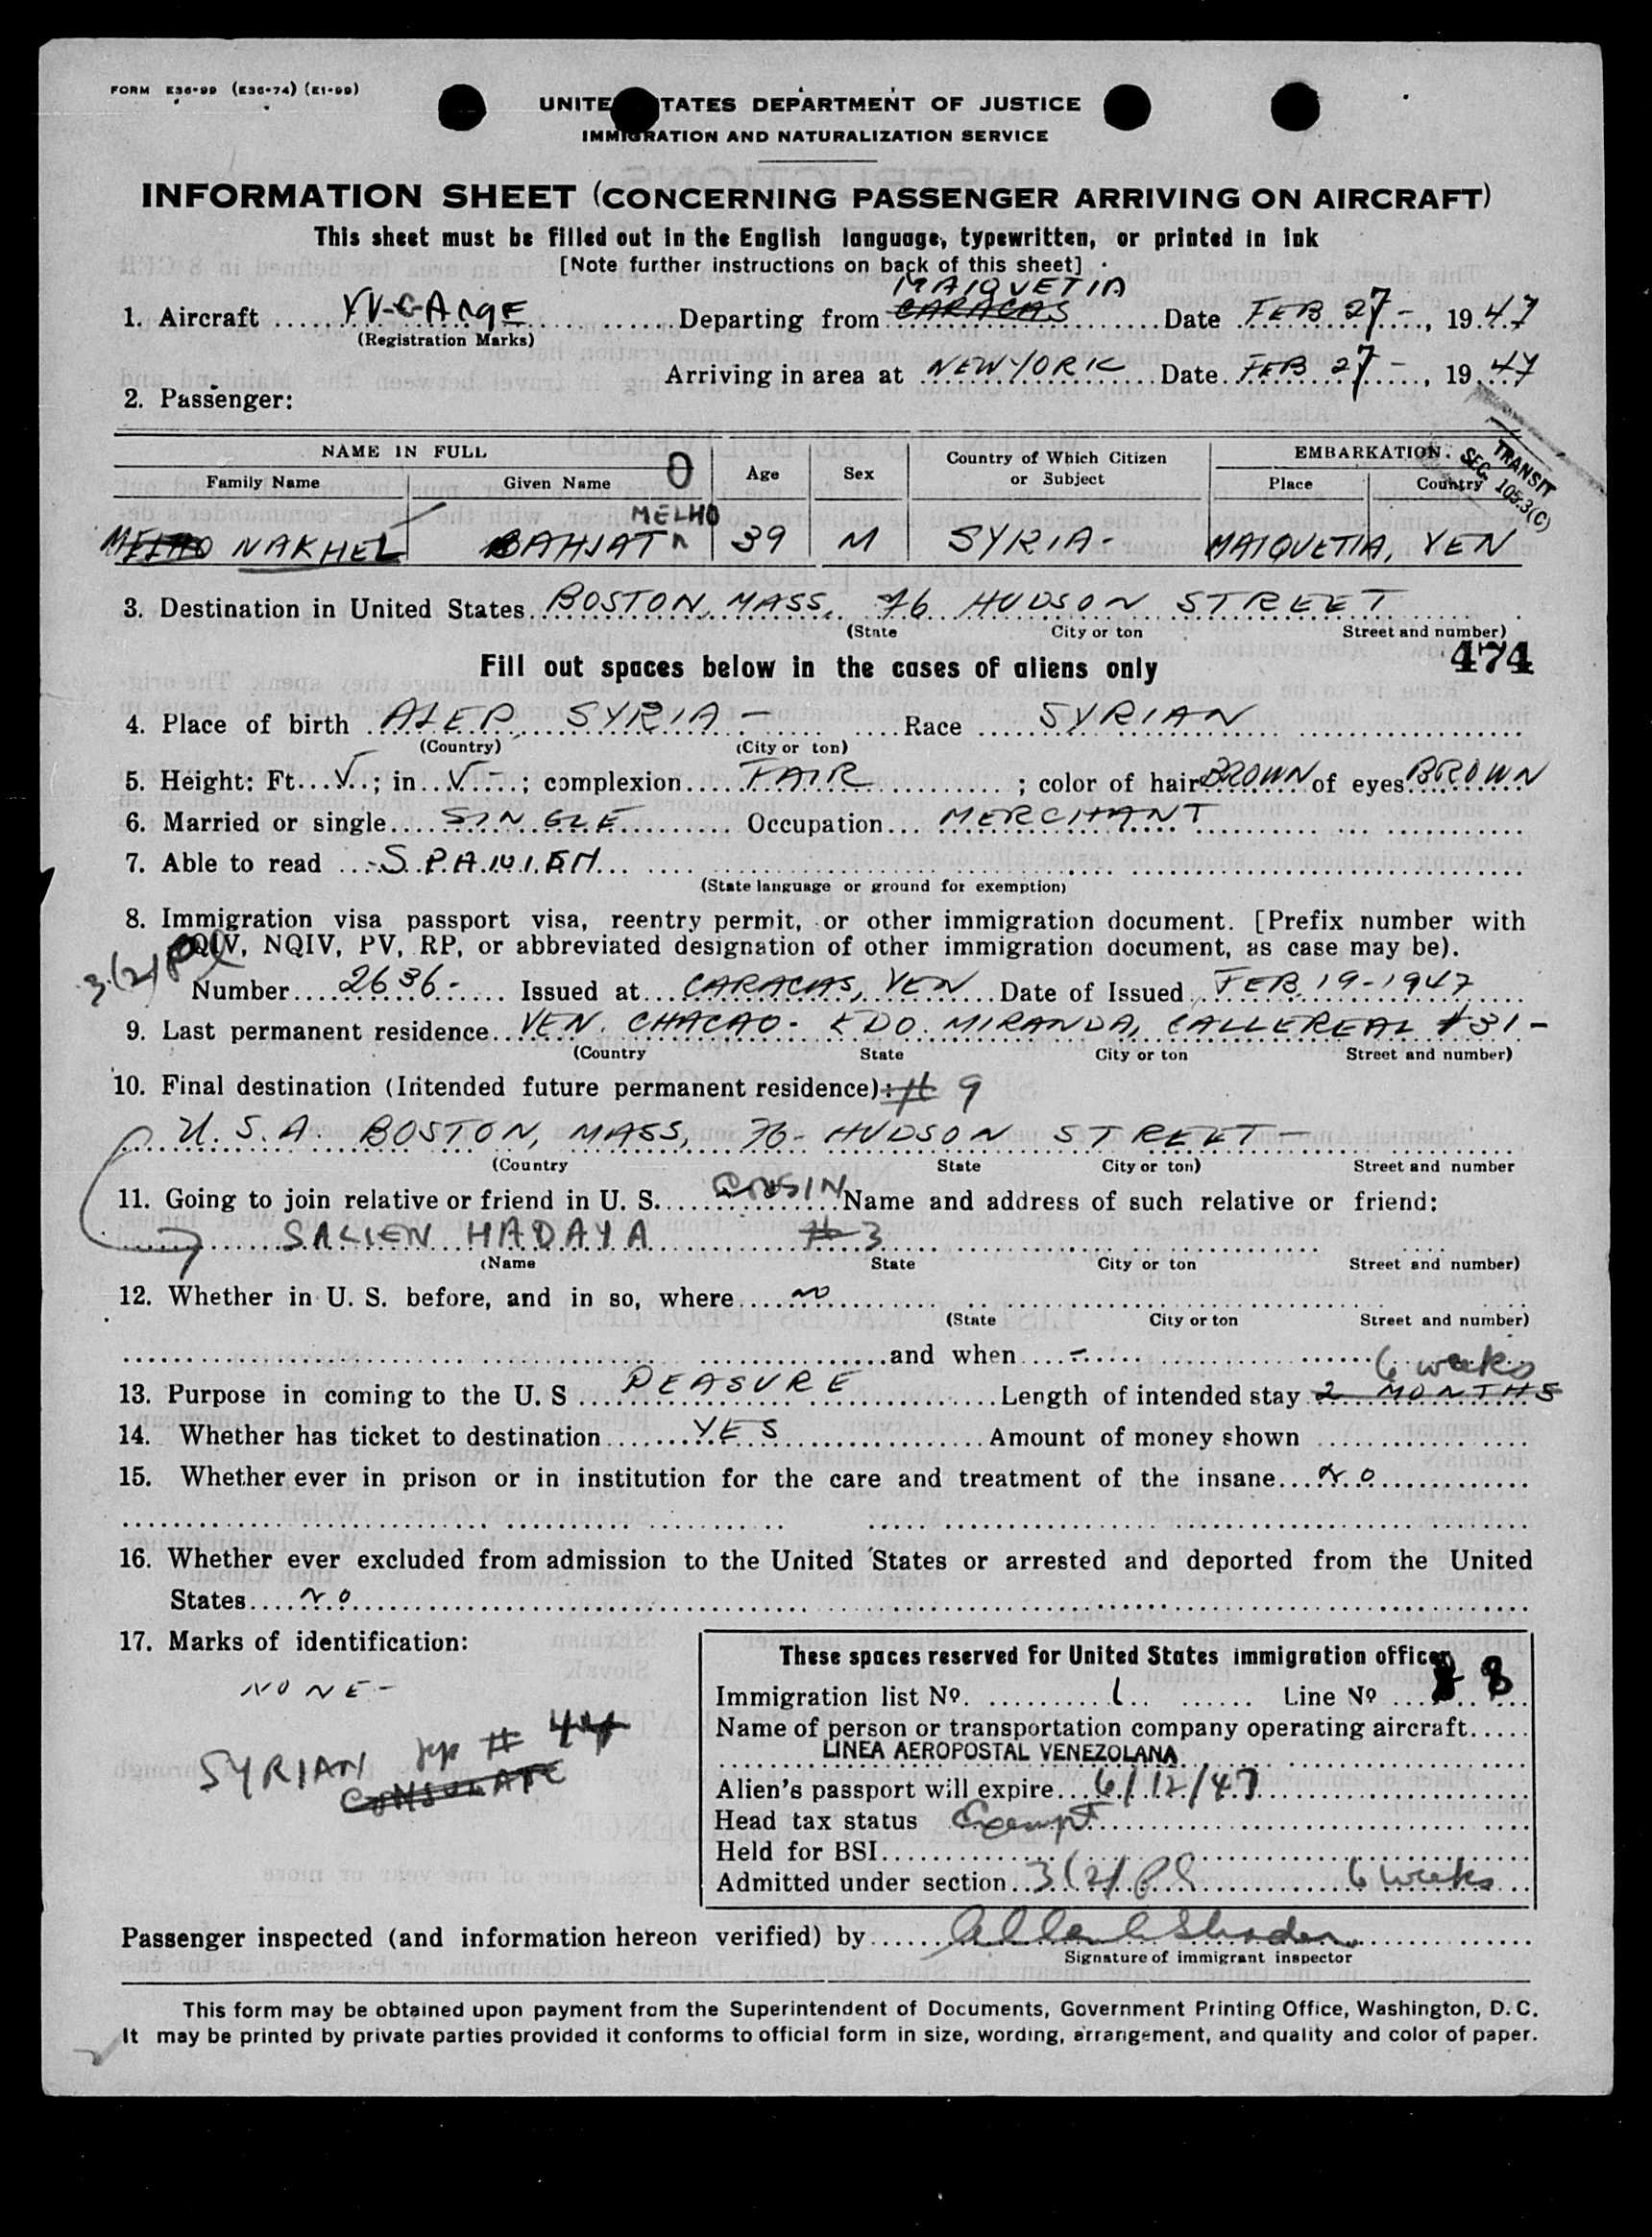 FORM E36-99 (E36-74) (E1-99)
UNITE TATES DEPARTMENT OF JUSTICE
IMMIGRATION AND NATURALIZATION SERVICE
INFORMATION SHEET (CONCERNING PASSENGER ARRIVING ON AIRCRAFT)
This sheet must be filled out in the English language, typewritten, or printed in ink
[Note further instructions on back of this sheet]
MAIQUETIA
1. Aircraft Departing from CARACAS Date FEB 27-, 1947
(Registration Marks)
Arriving in area at NEW YORK Date FEB 27-, 1947
2. Passenger:
TRANSIT
SEC. 105.3(C)
NAME IN FULL Age Sex Country of Which Citizen or Subject EMBARKATION
Family Name Given Name Place Country
MELHO
MELHO NAKHEL BAHJAT 39 M SYRIA- MAIQUETIA, VEN
3. Destination in United States BOSTON, MASS, 76 HUDSON STREET
(State City or ton Street and number)
474
Fill out spaces below in the cases of aliens only
4. Place of birth ALEP SYRIA- Race SYRIAN
(Country) (City or ton)
5. Height: Ft. 5; in 5-; complexion FAIR; color of hair BROWN of eyes BROWN
6. Married or single SINGLE Occupation MERCHANT
7. Able to read -SPANISH
(State language or ground for exemption)
8. Immigration visa passport visa, reentry permit, or other immigration document. [Prefix number with
QIV, NQIV, PV, RP, or abbreviated designation of other immigration document, as case may be).
3(2)
Number 2636- Issued at CARACAS, VEN Date of Issued FEB 19-1947
9. Last permanent residence VEN. CHACAO- EDO. MIRANDA, CALLE REAL #31-
(Country State City or ton Street and number)
10. Final destination (Intended future permanent residence): # 9
U.S.A. BOSTON, MASS, 76- HUDSON STREET-
(Country State City or ton) Street and number
11. Going to join relative or friend in U. S. COUSIN Name and address of such relative or friend:
SALIEN HADAYA # 3
(Name State City or ton Street and number)
12. Whether in U. S. before, and in so, where no
(State City or ton Street and number)
and when -
6 weeks
13. Purpose in coming to the U. S PLEASURE Length of intended stay 2 MONTHS
14. Whether has ticket to destination YES Amount of money shown
15. Whether ever in prison or in institution for the care and treatment of the insane NO
16. Whether ever excluded from admission to the United States or arrested and deported from the United
States NO
17. Marks of identification:
NONE-
SYRIAN pp #
CONSULATE
These spaces reserved for United States immigration officer
Immigration list No. 1 Line No 8
Name of person or transportation company operating aircraft
LINEA AEROPOSTAL VENEZOLANA
Alien's passport will expire 6/12/47
Head tax status Exempt
Held for BSI
Admitted under section 3(2) 6 weeks
Passenger inspected (and information hereon verified) by
Signature of immigrant inspector
This form may be obtained upon payment from the Superintendent of Documents, Government Printing Office, Washington, D. C.
It may be printed by private parties provided it conforms to official form in size, wording, arrangement, and quality and color of paper.